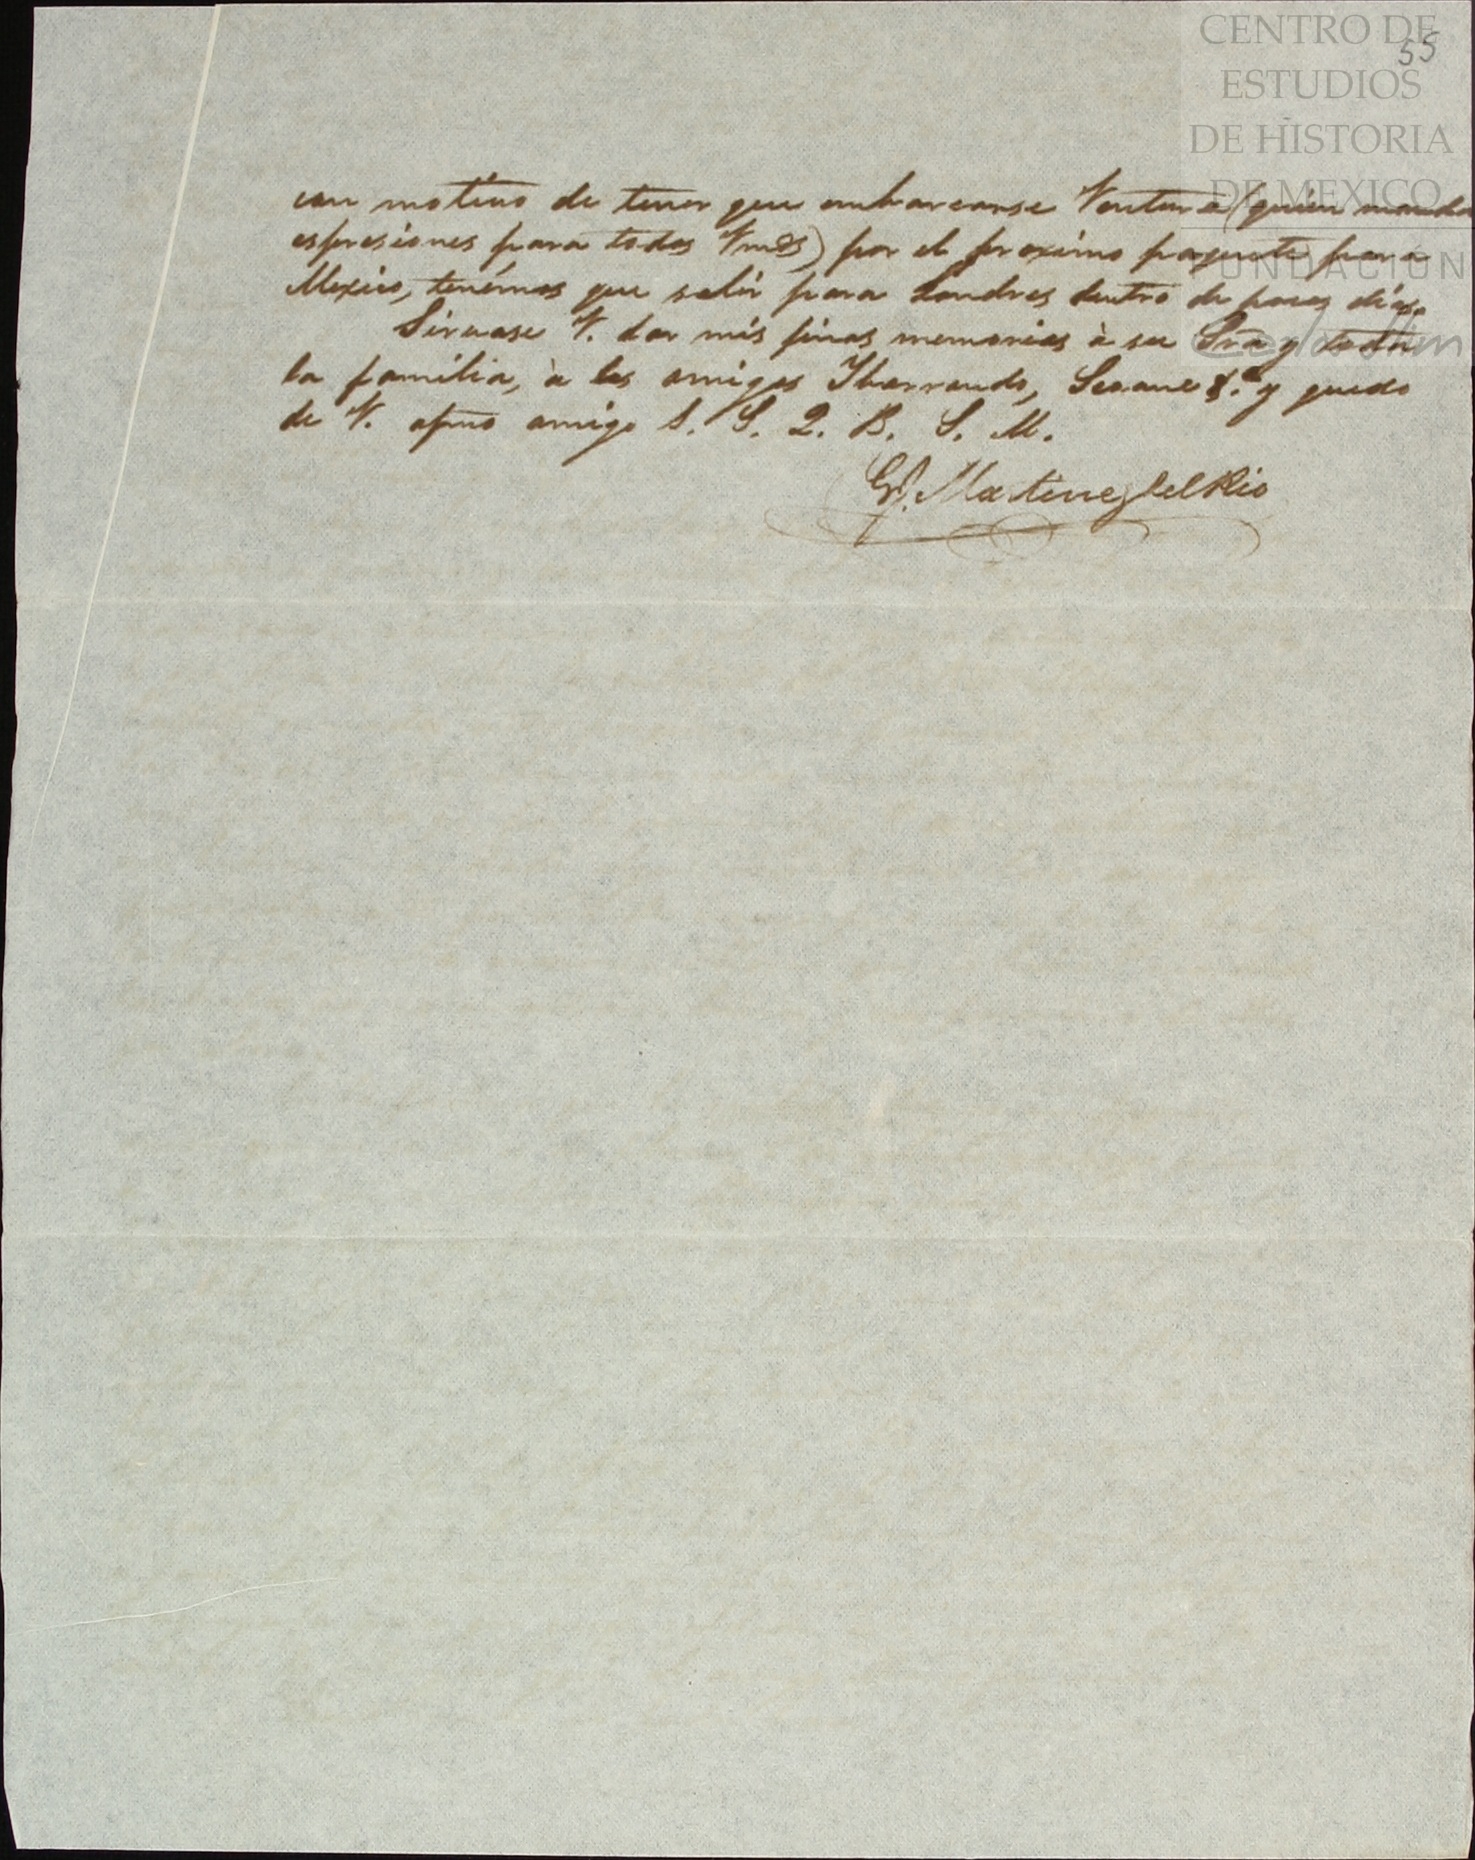 55
CENTRO DE
ESTUDIOS
DE HISTORIA
DE MEXICO
FUNDACIÓN
con motivo de tener que embarcarse Ventura (quién manda
espresiones para todos Vmds) por el proximo paquete para
Mexico, tenémos que salir para Londres dentro de pocos días.
Sirvase V. dar mis finas memorias à su Sra y toda
la familia, à los amigos Ybarrondo, Seoane &.a y quedo
de V. afmo amigo S. S. Q. B. S. M.
G. Martinez del Rio